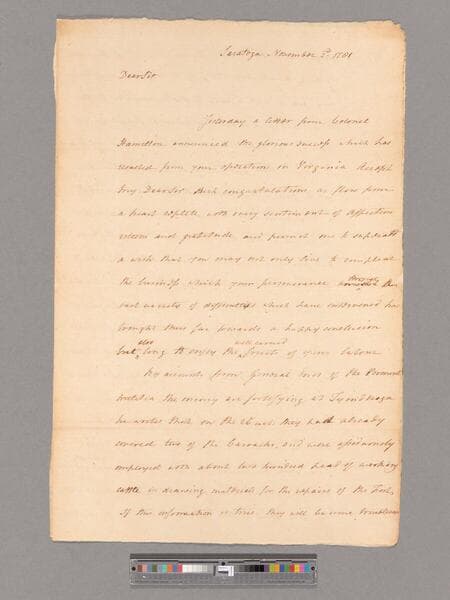 Saratoga November 2d. 1781
Dear Sir
Yesterday a letter from Colonel
Hamilton announced the glorious success which has
resulted from your operation in Virginia. Accept
my Dear Sir such congratulations as flow from
a heart replete with every sentiment of affection
esteem and gratitude and permit me to
a wish that you may not only live to compleat
the business which your perseverance through the
vast variety of difficulties which have intervened has
brought thus far towards a happy conclusion
but also long to enjoy the well earned fruits of your labour
By accounts from General of the Vermont
the enemy are fortifying at Tyonderoga
he writes that on the 26 inst they had already
covered two of the Barracks, and were assiduously
employed with about two hundred head of working
cattle in draining materials for the repairs of the Fort,
If this information is true, they will become troublesome